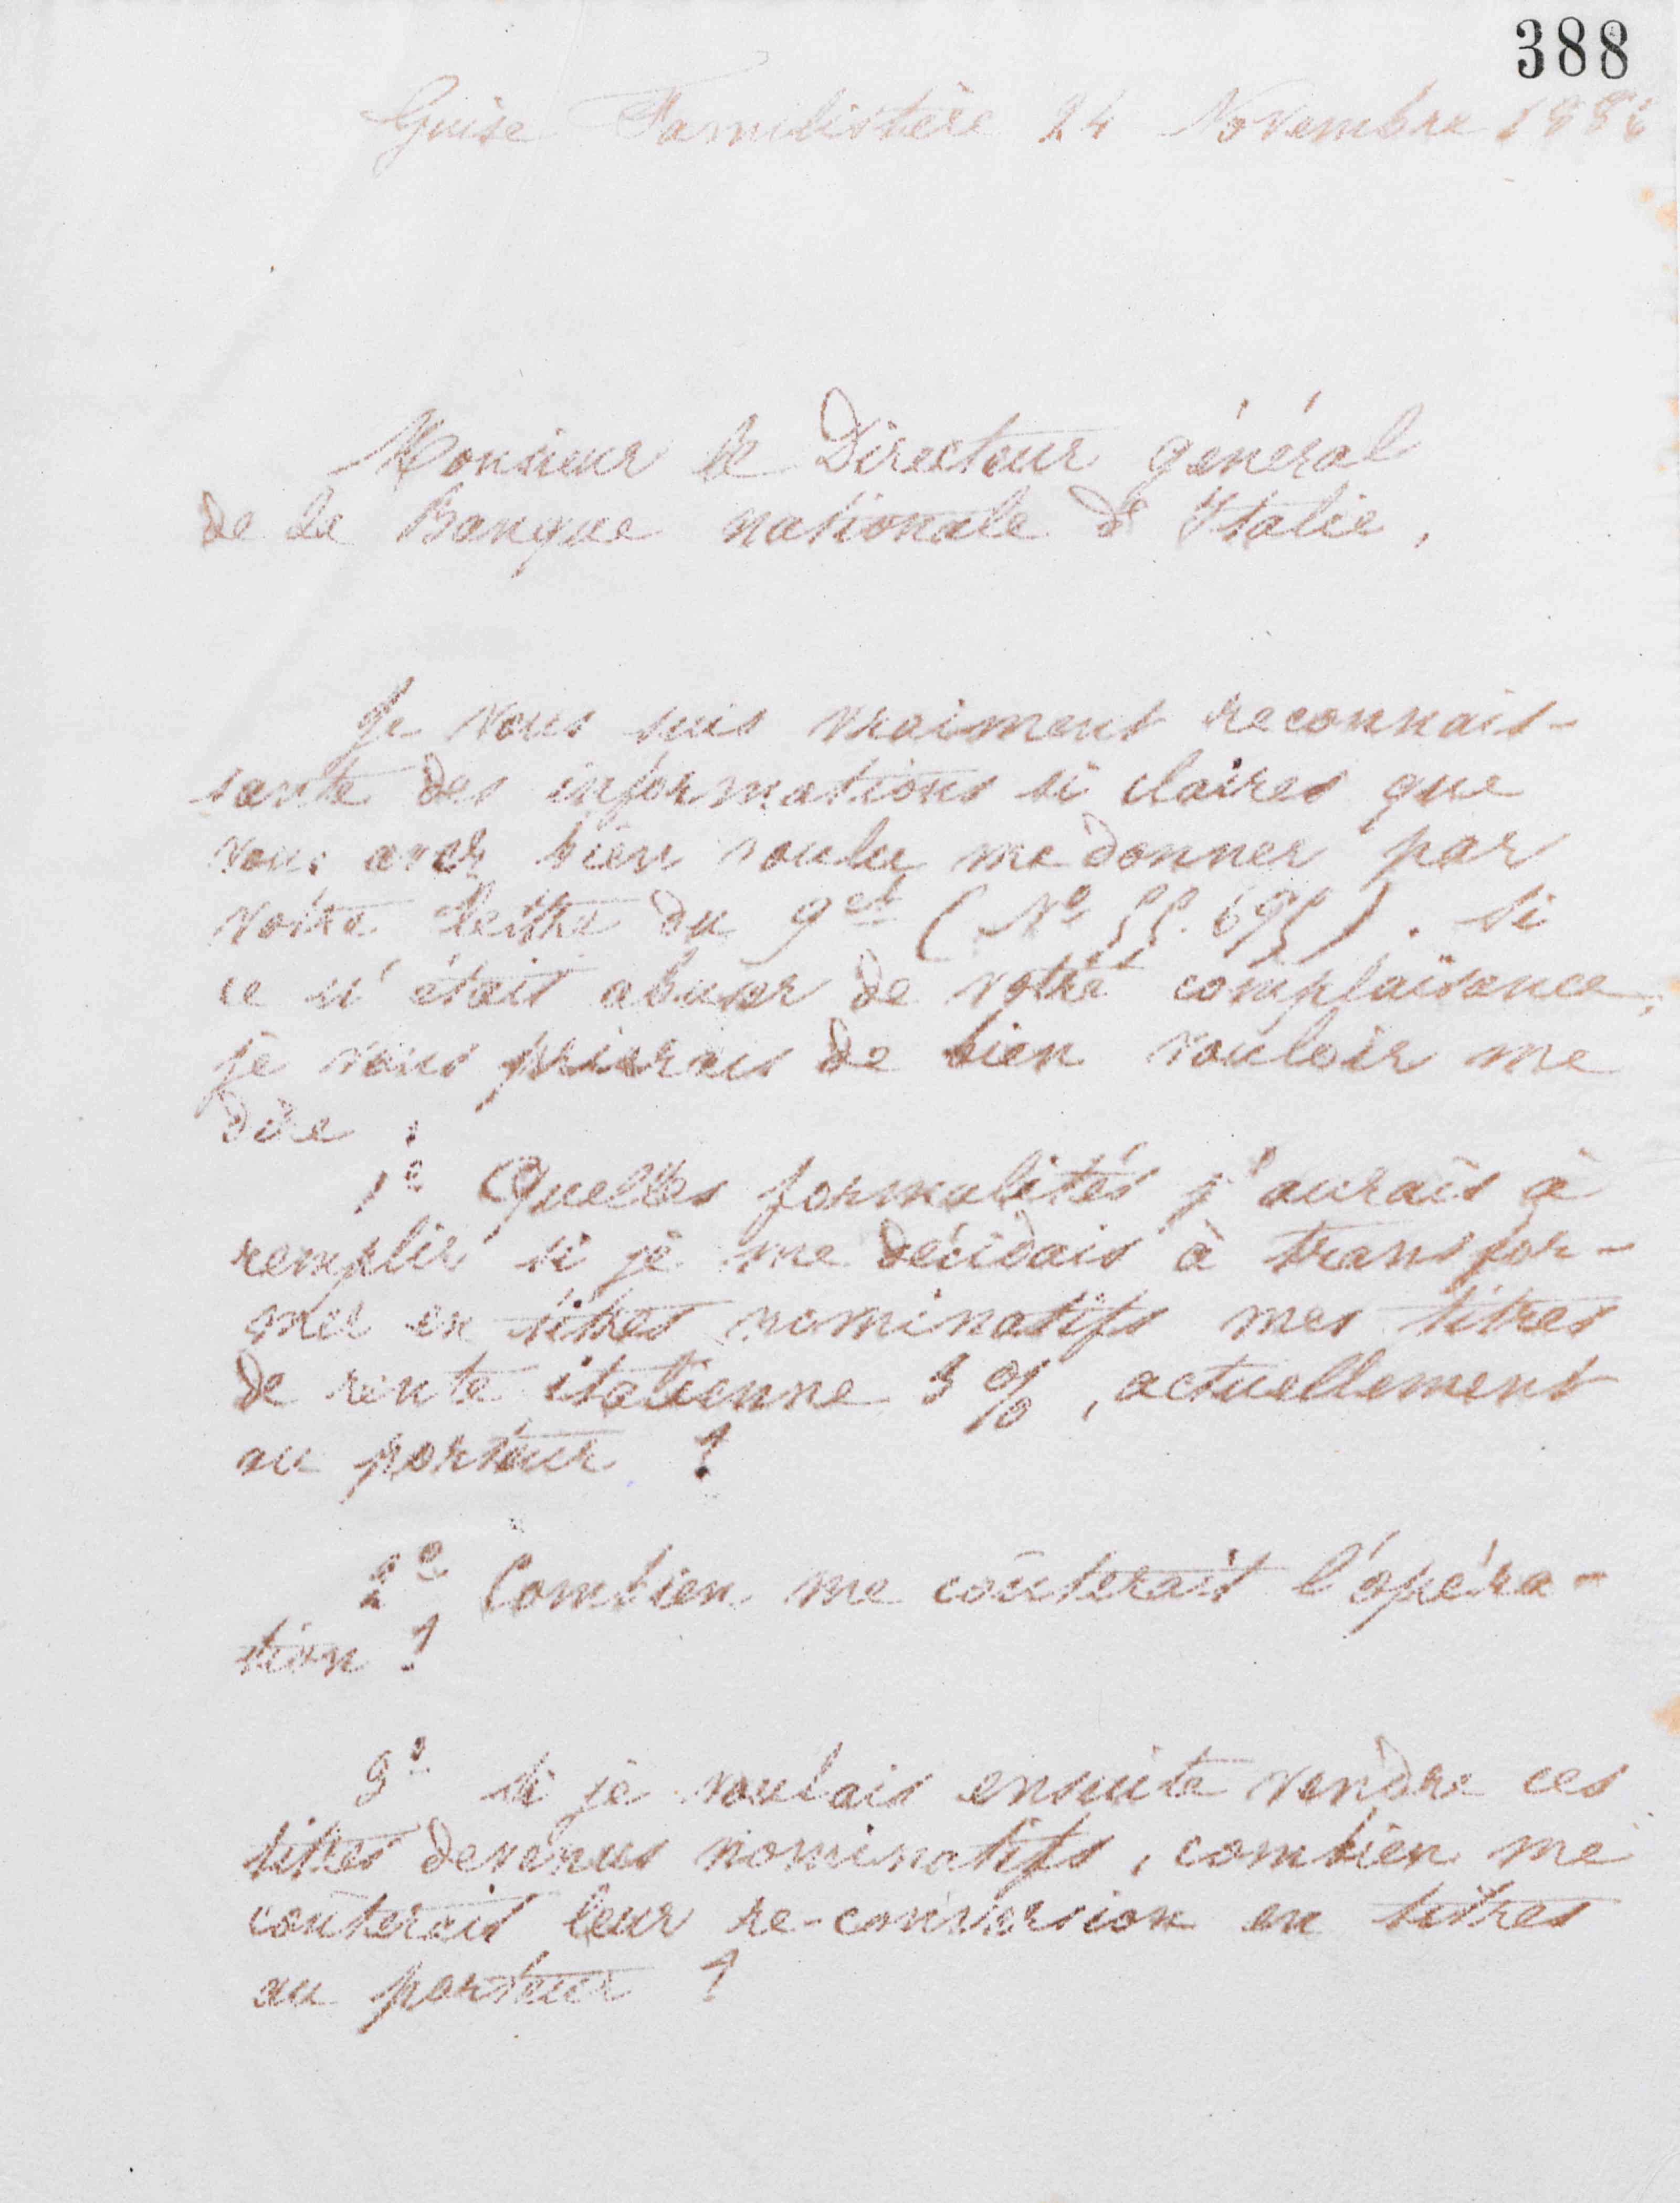 388
Guise Familistère 24 Novembre 1888
Monsieur le Directeur général
de la Banque nationale d'Italie,
Je vous suis vraiment reconnais-
sante des informations si claires que
vous avez bien voulu me donner par
votre lettre du 9 et (No 55.695). Si
ce n'était abuser de votre complaisance,
je vous prierais de bien vouloir me
dire :
1o Quelles formalités j'aurais à
remplir si je me décidais à transfor-
mer en titres nominatifs mes titres
de rente italienne 5 %, actuellement
au porteur ?
2o Combien me coûterait l'opéra-
tion ?
3o Si je voulais ensuite vendre ces
titres devenus nominatifs, combien me
coûterait leur re-conversion en titres
au porteur ?